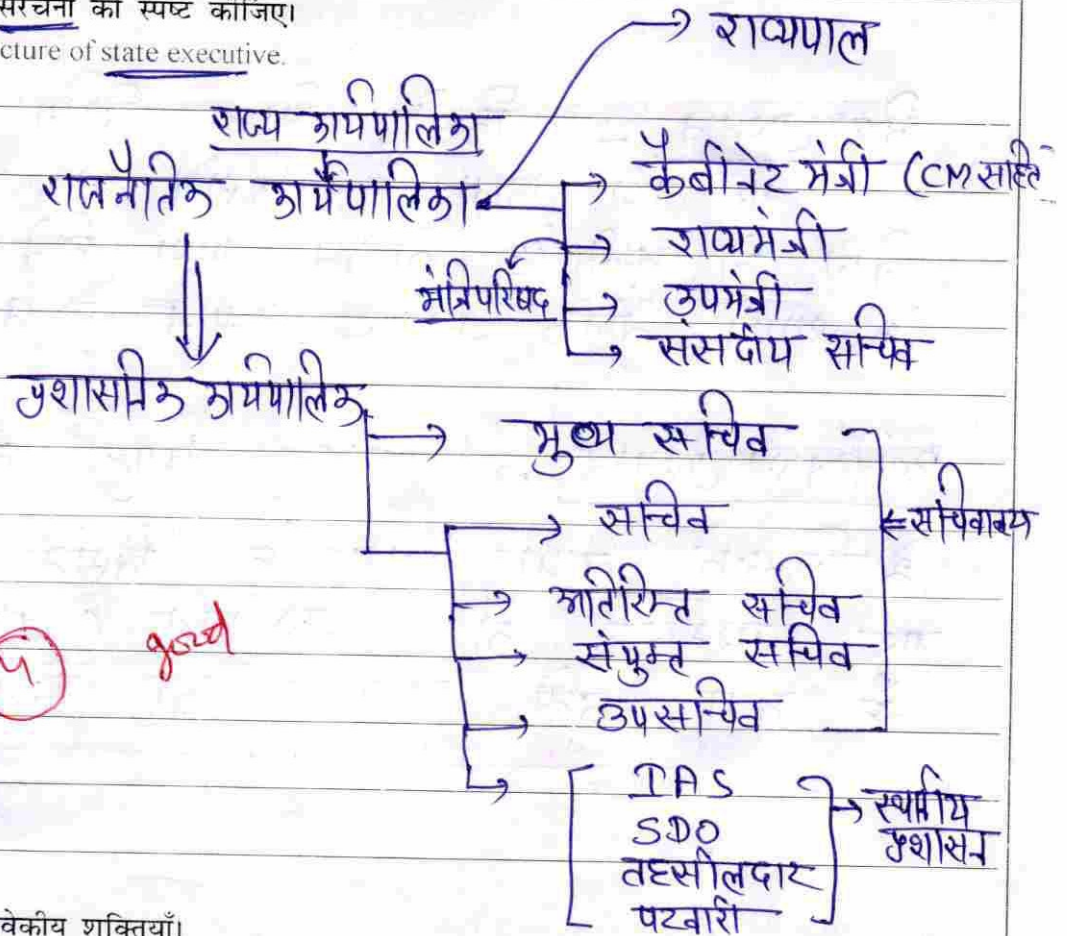 संरचना को स्पष्ट कीजिए।
cture of state executive.
राज्यपाल
राज्य कार्यपालिका
राजनैतिक कार्यपालिका
कैबीनेट मंत्री (CM सहित
राज्यमंत्री
मंत्रिपरिषद
उपमंत्री
संसदीय सचिव
प्रशासनिक कार्यपालिक
मुख्य सचिव
सचिव
सचिवालय
अतिरिक्त सचिव
संयुक्त सचिव
good
उपसचिव
IAS
स्थानीय
प्रशासन
SDO
तहसीलदार
पटवारी
वेकीय शक्तियाँ।